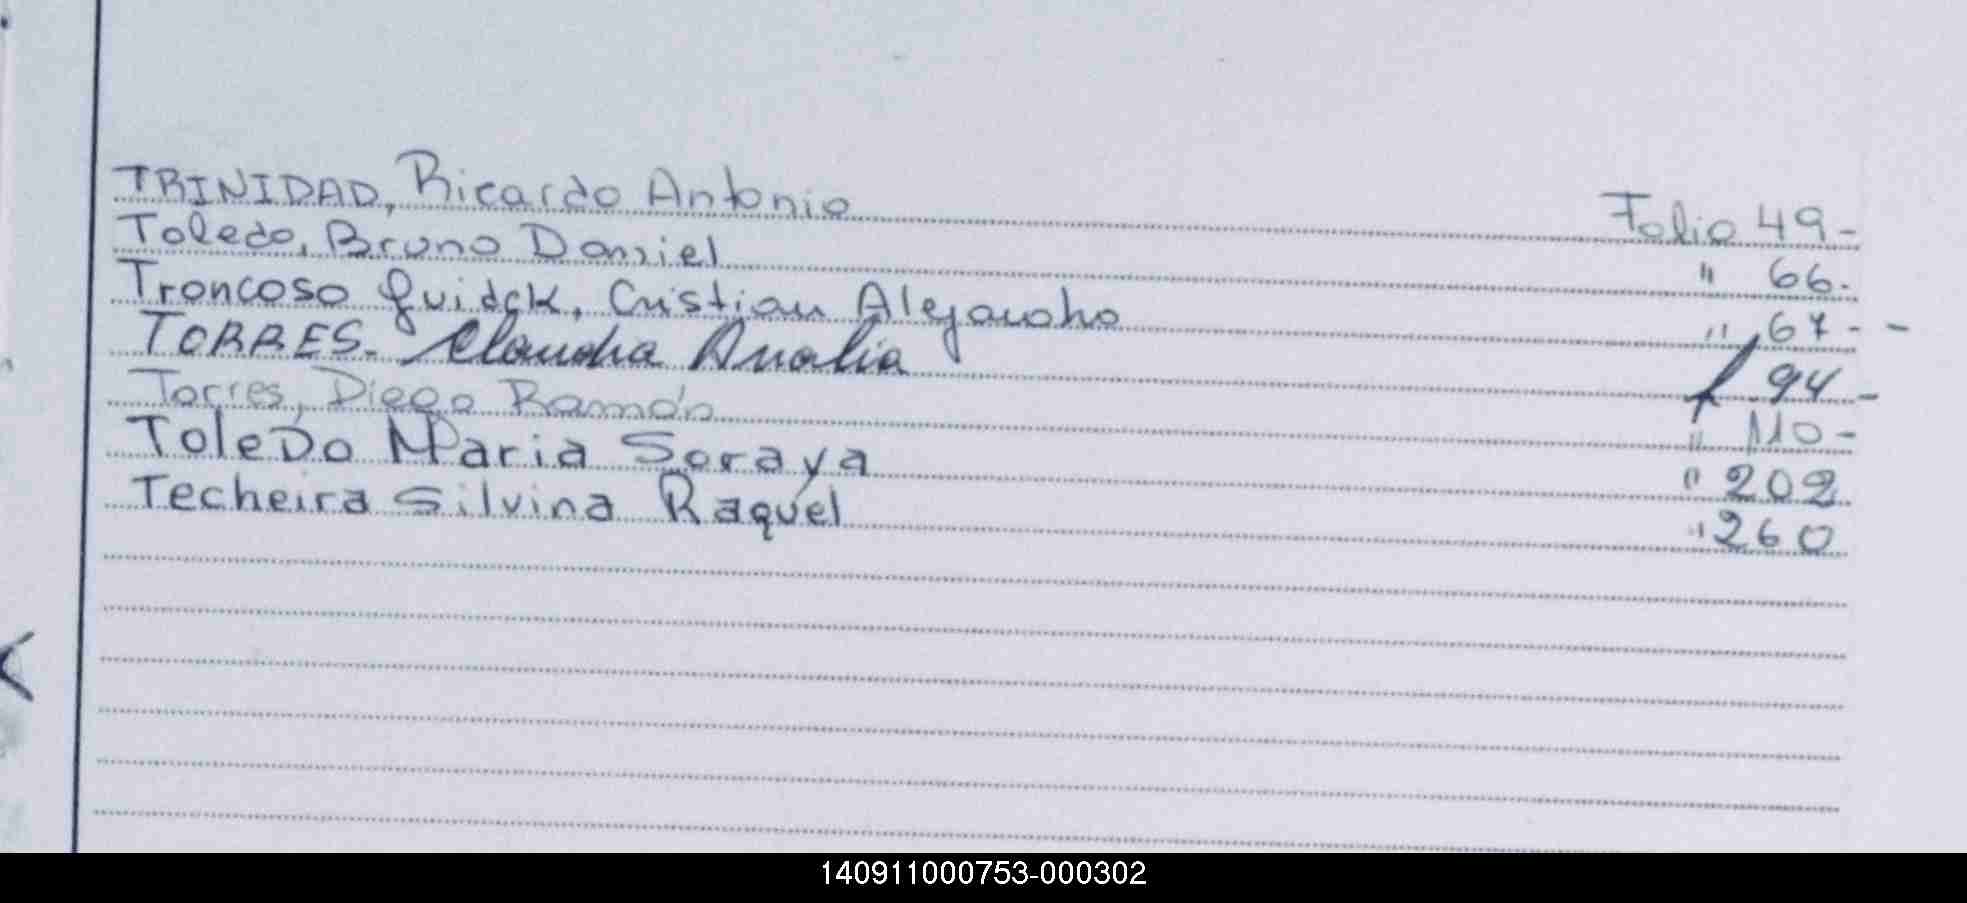 TRINIDAD, Ricardo Antonio Folio 49-
Toledo, Bruno Daniel " 66-
Troncoso Quidck, Cristian Alejandro " 67- -
TORRES- Claudia Analia f 94-
Torres, Diego Ramón " 110-
Toledo Maria Soraya " 202
Techeira Silvina Raquel " 260
140911000753-000302